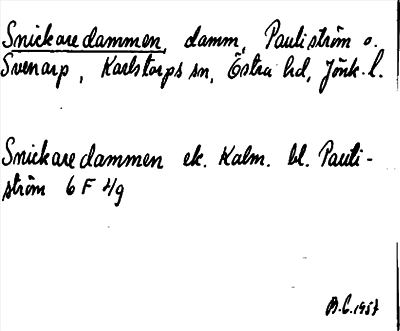 Snickaredammen, damm, Pauliström o.
Svenarp, Karlstorps sn, Östra hd, Jönk. l.
Snickaredammen ek. Kalm. bl. Pauli-
ström 6 F 4/g
B.C. 1957